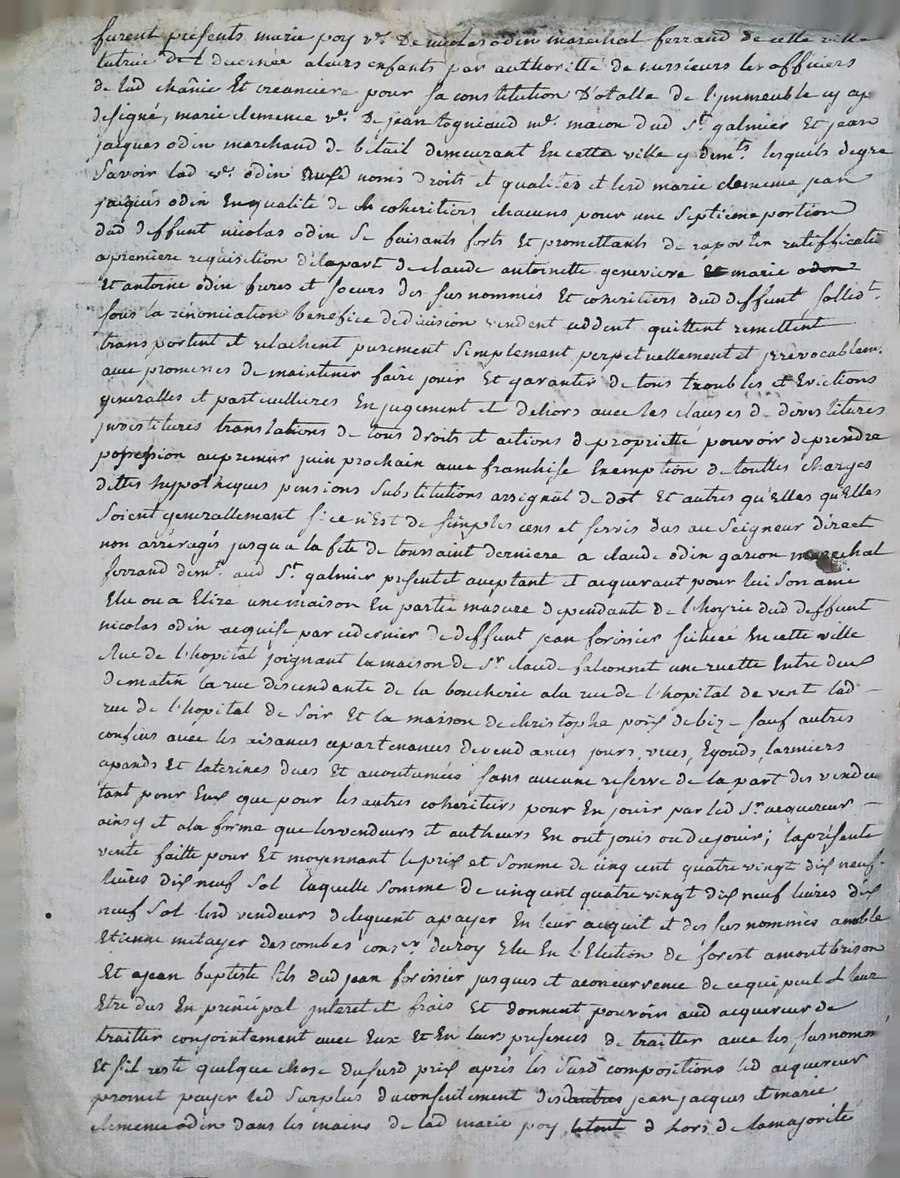 furent présents marie poy v.e De nicolas odin marechal ferrand de cette ville
tutrice et decernée a leurs enfants par authoritté de messieurs les officiers
de lad chanie Et creanciere pour sa constitution D'otalle de l'immeuble cy ap
designé, marie clemence v.e De jean togniaud m.e macon dud S.t galmier Et jean
jacques odin marchaud de bétail demeurant En cette ville y dem.ts lesquels de gre
Savoir lad v.e odin Ausd noms droits et qualités et lesd marie clemence jean
jacques odin En qualité de coheritiers chacuns pour une Septieme portion
dud deffunt nicolas odin Se faisants forts Et promettants de raporter ratifficatio
a premiere requisition de la part de claude antoinette genevieve Et marie odon
Et antoine odin freres et soeurs des susnommés Et coheritiers dud deffunt sollid.t
sous la rénonciation benefice de division vendent ceddent quittent remettent
transportent et relachent purement Simplement perpetuellement et jrrévocablem.
avec promesses de maintenir faire jouir Et garantir de tous troubles et Evictions
generalles et particullieres En jugement et dehors avec les clauses de devestitures
jnvestitures translations de tous droits et actions de proprietté pouvoir de prendre
possession au premier juin prochain avec franchise Exemption de touttes charges
dettes hypotheques pensions Substitutions assignal de dot Et autres qu'Elles qu'Elles
Soient generallement si ce n'Est de simples cens et servis dus au Seigneur direct
non arréragés jusqu'a la fete de toussaint derniere a claude odin garcon marechal
ferrand dem.t aud S.t galmier présent et aceptant et acquerant pour lui Son ame
Elu ou a Elire une maison En partie masure dependante de l'hoyrie dud deffunt
nicolas odin acquise par ce dernier de deffunt jean forissier situeé En cette ville
Rue de l'hopital joignant la maison de S.r claude falconnet une ruette Entre deux
de matin la rue descendante de la boucherie a la rue de l'hopital de vent lad
rue de l'hopital de Soir Et la maison de christophe poix de bize sauf autres
confins avec les aisances apartenances devend ances jours, vues, Egouds, larmiers
apands Et laterines dues Et acoutumées sans aucune reserve de la part des vendeu
tant pour Eux que pour les autres coheritiers pour En jouir par led S.r acquereur
ainsy et a la forme que les vendeurs et autheurs En ont jouis ou du jouir; la présente
vente faitte pour Et moyennant le prix et Somme de cinq cent quatre vingt dix neuf
livres dix neuf Sol laquelle Somme de cinq cent quatre vingt dix neuf livres dix
neuf Sol lesd vendeurs deleguent a payer En leur acquit et des susnommés a noble
Etienne metayer descombes cons.er du roy Elu En l'Election de forest a montbrison
Et a jean baptiste fils dud jean forissier jusques et a concurrence de ce qui peut leur
Etre dus En principal jnteret et frais Et donnent pouvoir aud acquereur de
traitter conjointement avec Eux Et En leurs presences de traitter avec les susnomm
Et s'il reste quelque chose du susd prix après les Susd compositions led acquereur
promet payer led Surplus du consentement desd autres jean jacques et marie
clemence odin dans les mains de lad marie poy letout d hors de la majorité